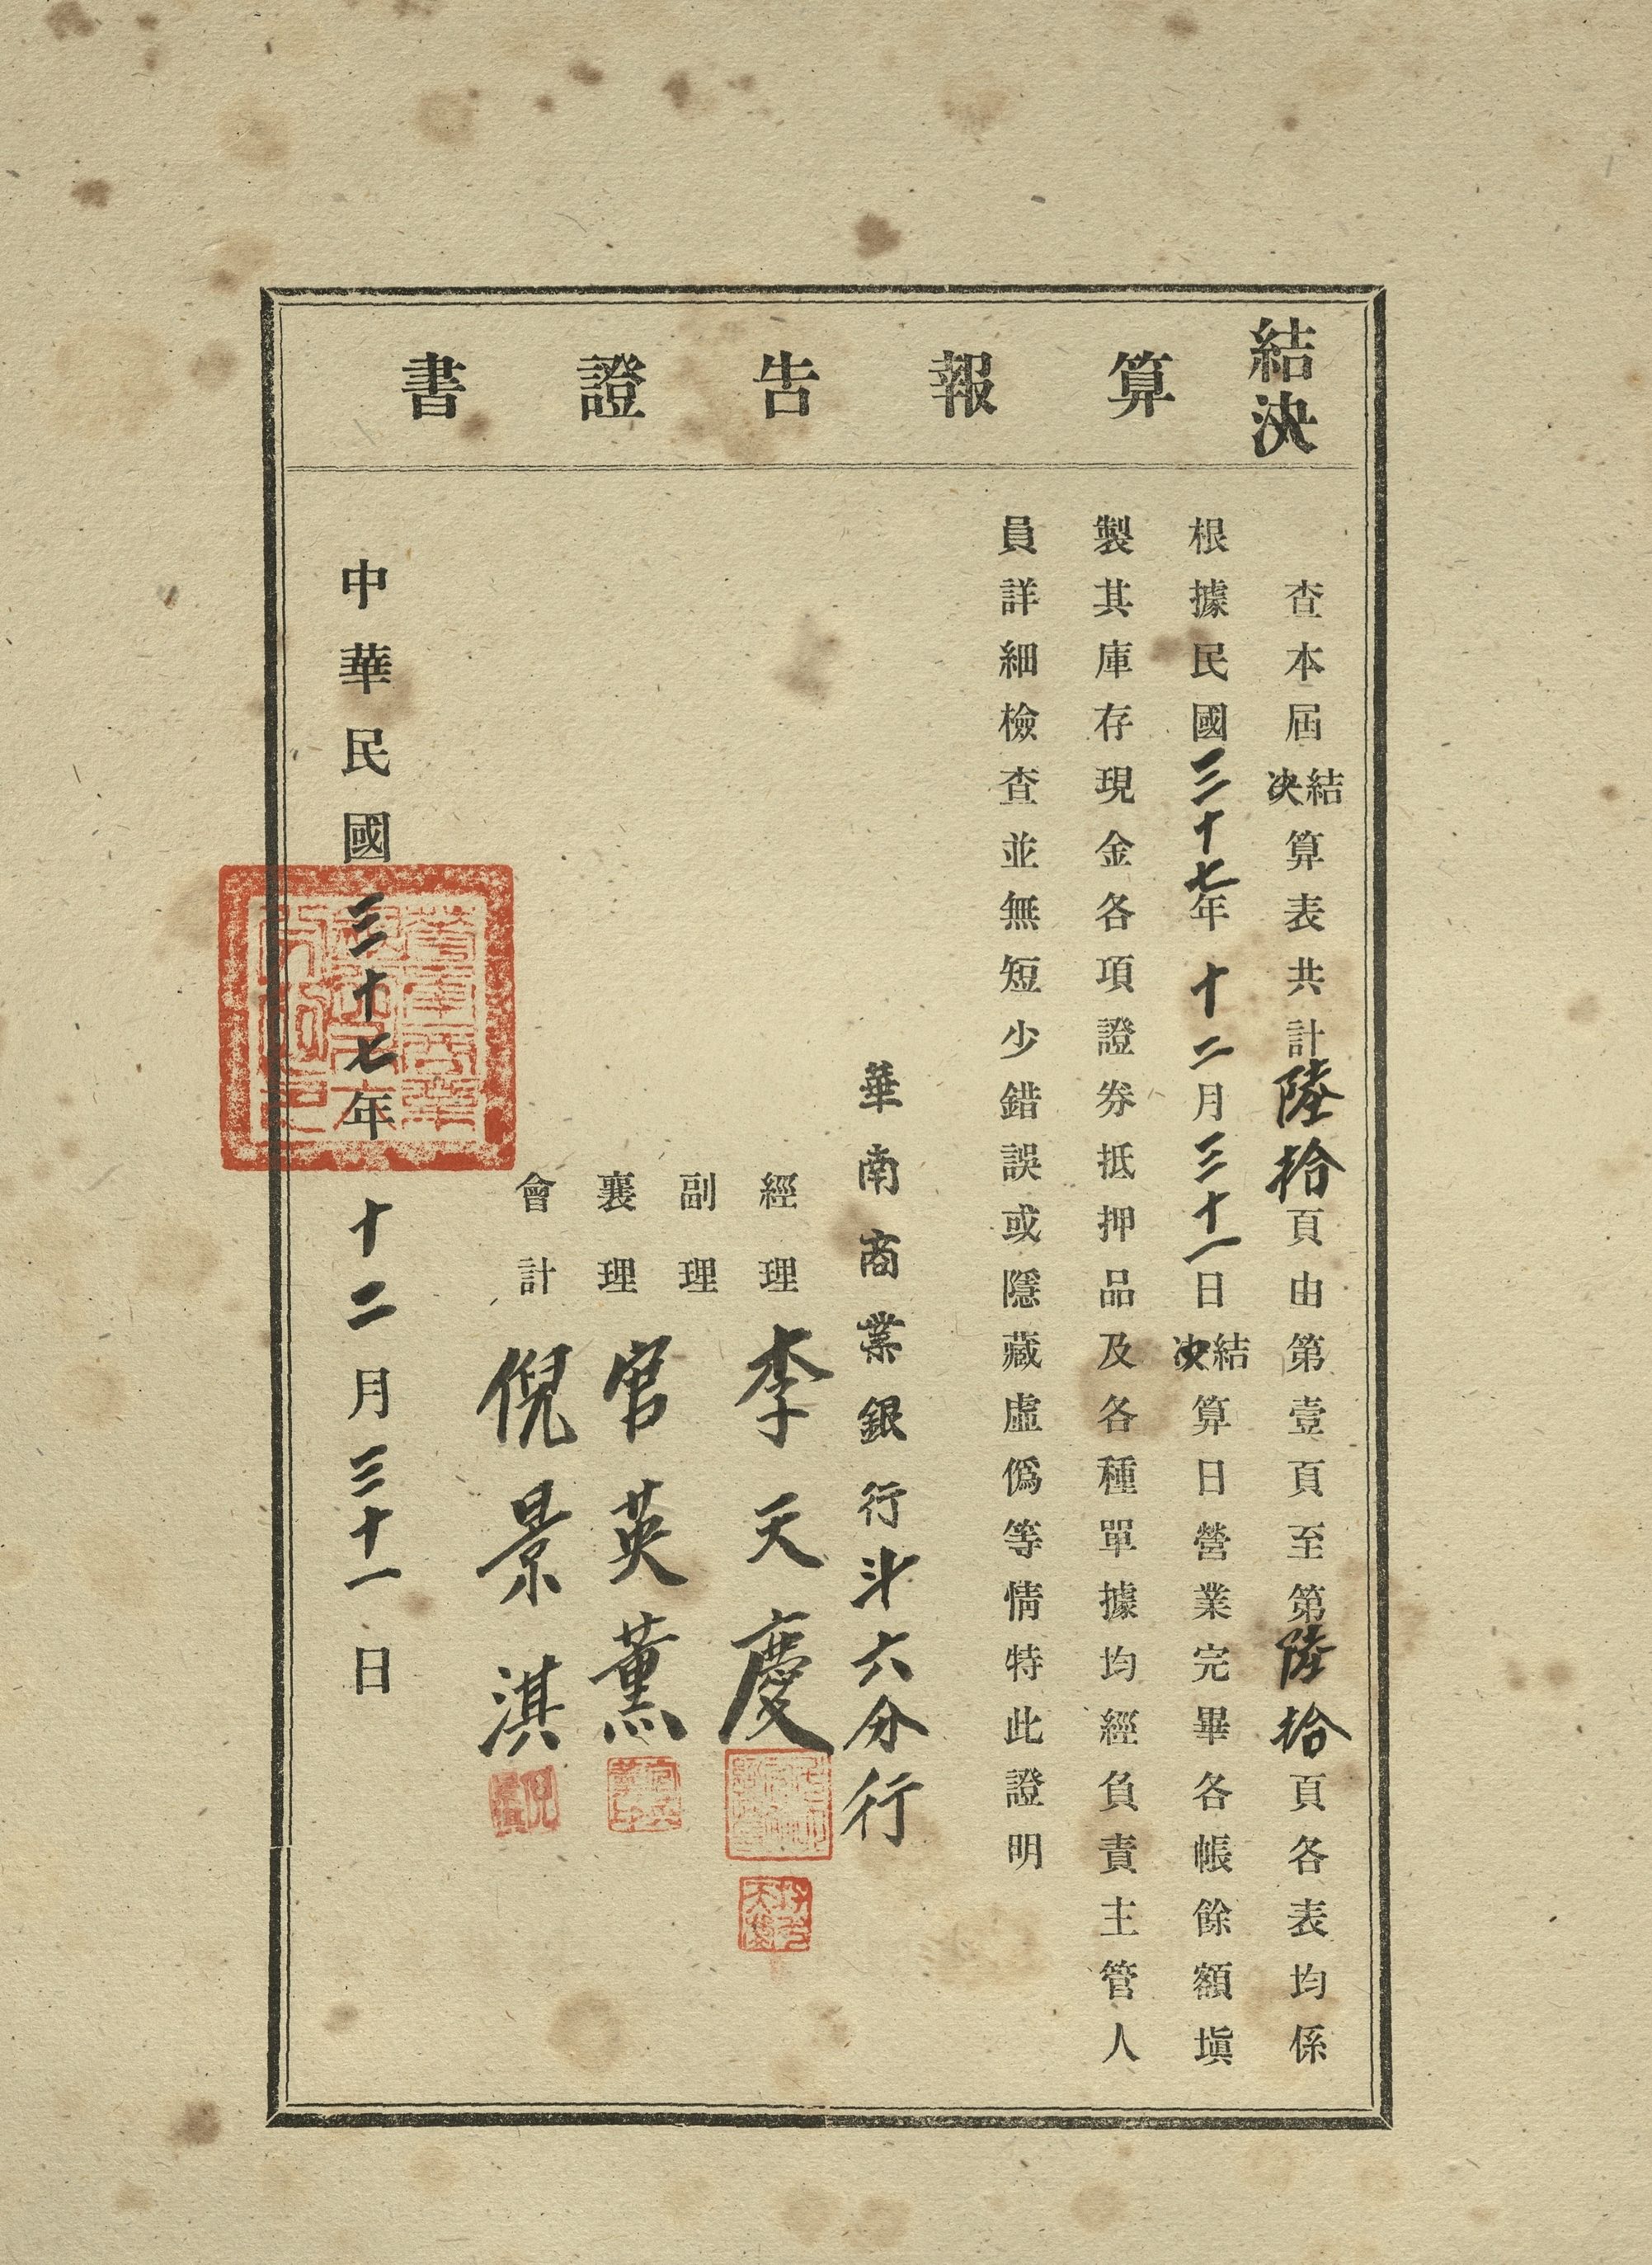 結決算報告證書
查本屆結決算表共計陸拾頁由第壹頁至第陸拾頁各表均係
根據民國三十七年十二月三十一日結決算日營業完畢各帳餘額塡
製其庫存現金各項證券抵押品及各種單據均經負責主管人
員詳細檢查並無短少錯誤或隱藏虛僞等情特此證明
華南商業銀行斗六分行
經理 李天慶
副理
襄理 官英薰
會計 倪景淇
中華民國三十七年十二月三十一日